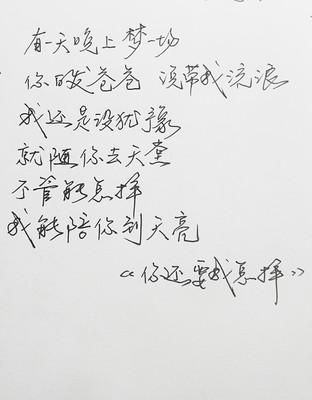 有一天晚上梦一场
你白发苍苍 说带我流浪
我还是没犹豫
就随你去天堂
不管能怎样
我能陪你到天亮
《你还要我怎样》